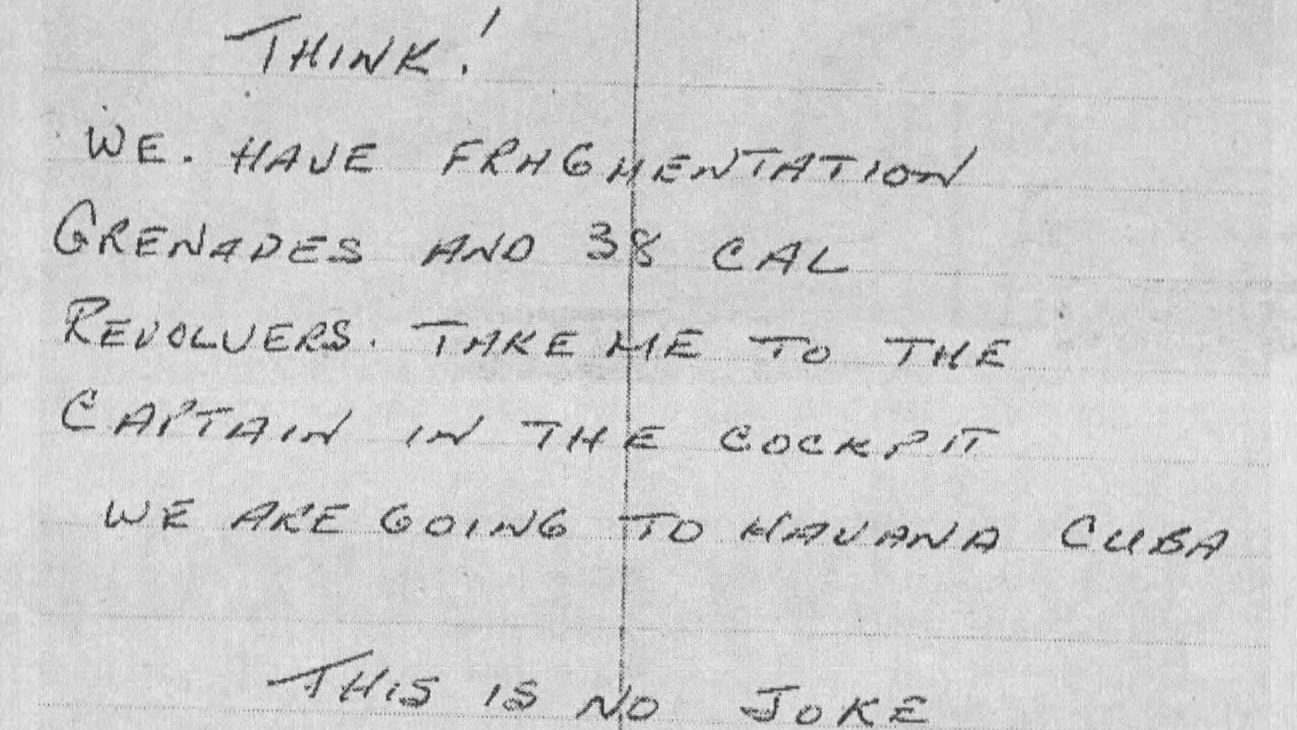 THINK!
WE. HAVE FRAGMENTATION
GRENADES AND 38 CAL
REVOLVERS. TAKE ME TO THE
CAPTAIN IN THE COCKPIT
WE ARE GOING TO HAVANA CUBA
THIS IS NO JOKE